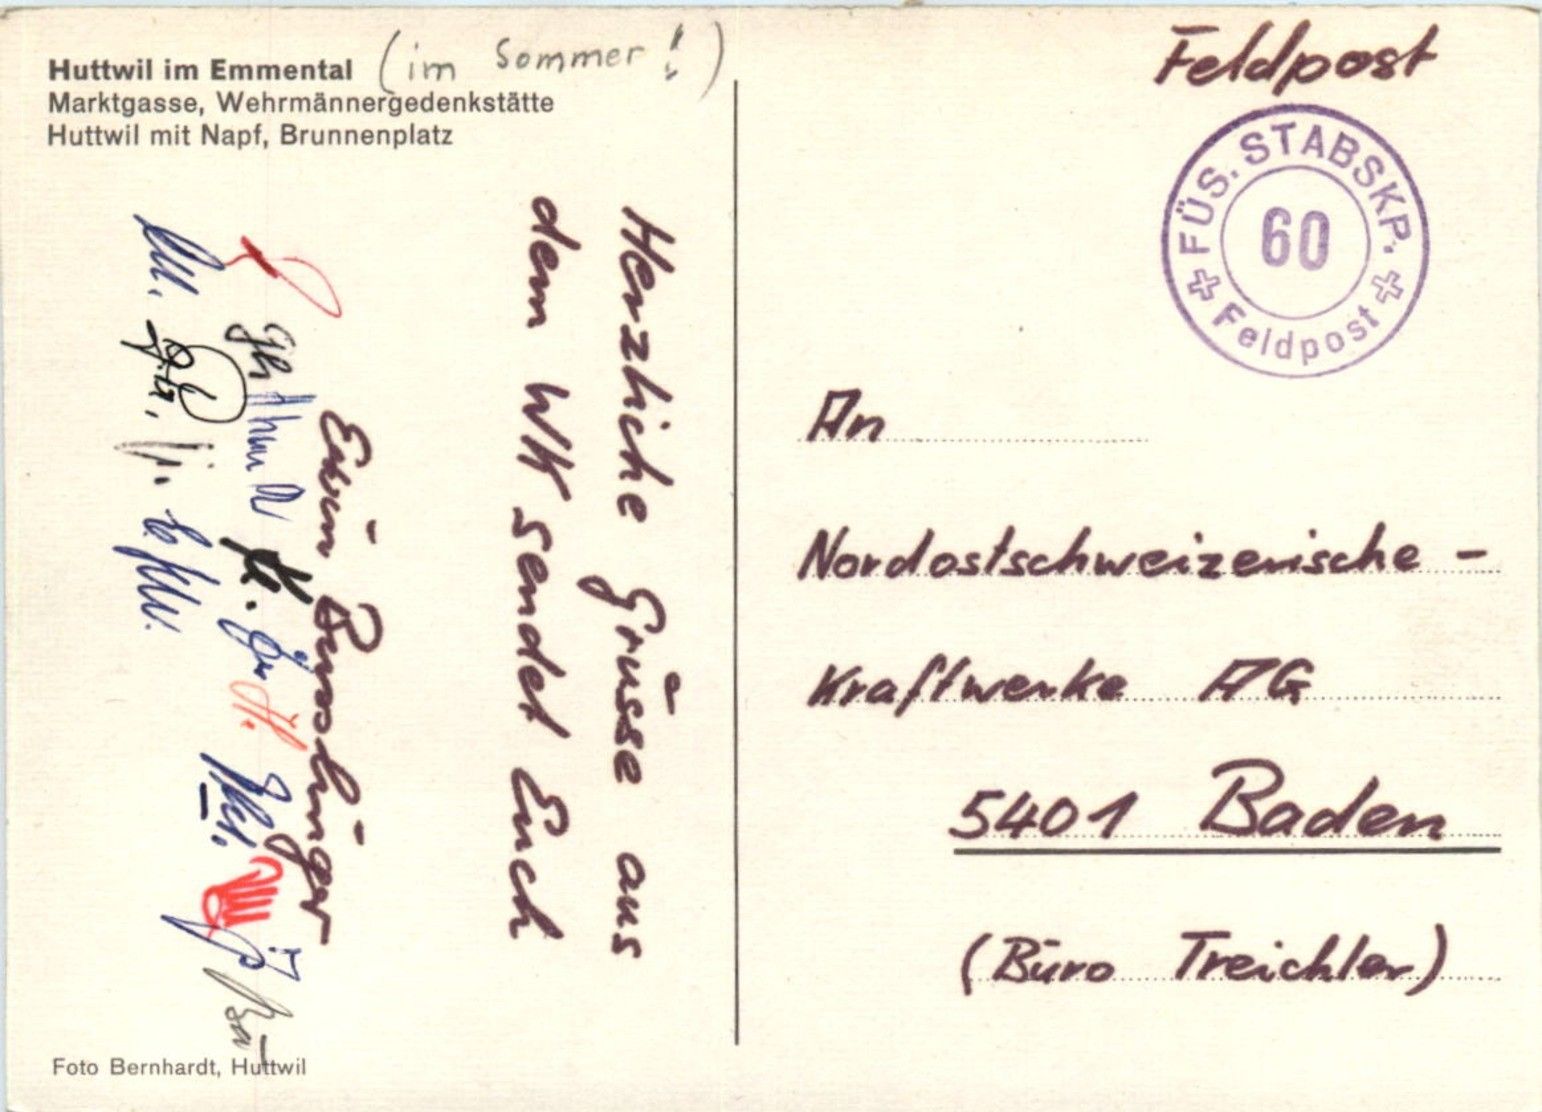 Huttwil im Emmental (im Sommer!)
Marktgasse, Wehrmännergedenkstätte
Huttwil mit Napf, Brunnenplatz
Herzliche Grüsse aus
dem WK sendet Euch
Erwin
Foto Bernhardt, Huttwil
Feldpost
FÜS. STABSKP.
60
Feldpost
An
Nordostschweizerische -
Kraftwerke AG
5401 Baden
(Büro Treichler)